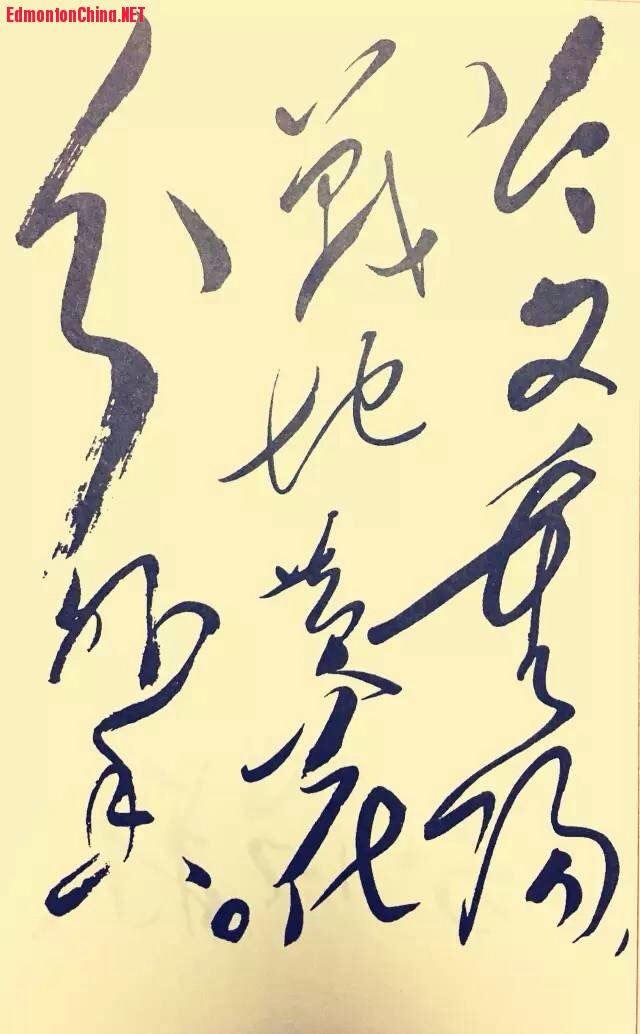 EdmontonChina.NET
今又重陽,
戰地黃花
分外香。